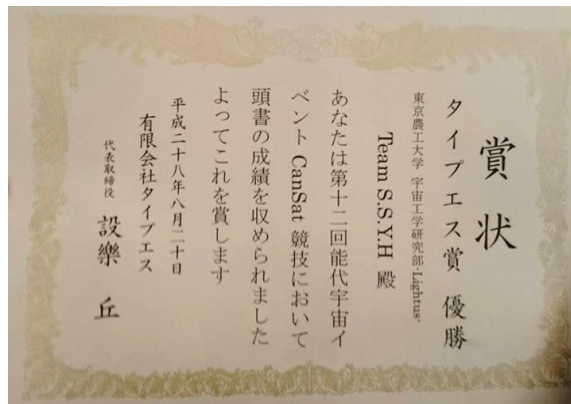 賞状
タイプエス賞 優勝
東京農工大学 宇宙工学研究部-Lightus-
Team S.S.Y.H 殿
あなたは第十二回能代宇宙イ
ベント CanSat 競技において
頭書の成績を収められました
よってこれを賞します
平成二十八年八月二十日
有限会社タイプエス
代表取締役 設樂 丘